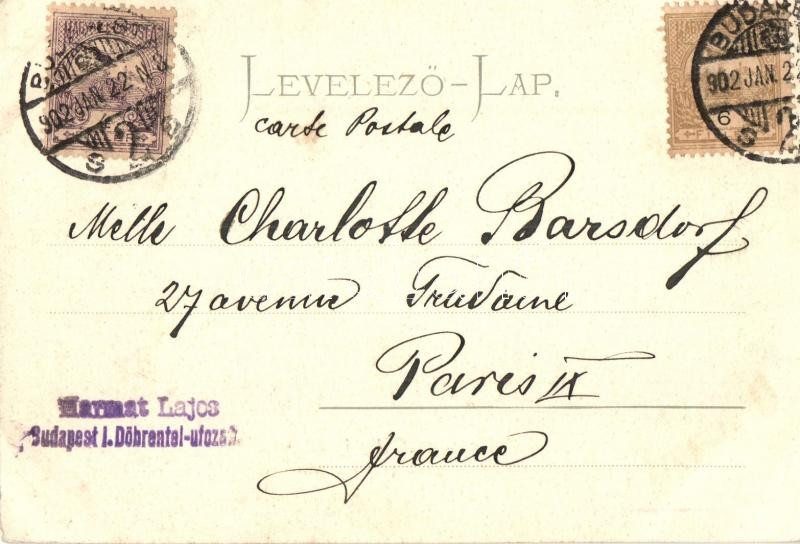 MAGYAR POSTA
902 JAN. 22. N 8
BUDAPE
902 JAN. 22
6
LEVELEZŐ-LAP.
carte Postale
Melle Charlotte Barsdorf
27 avenue Trudaine
Paris IX
france
Harmat Lajos
Budapest I. Döbrentei-u